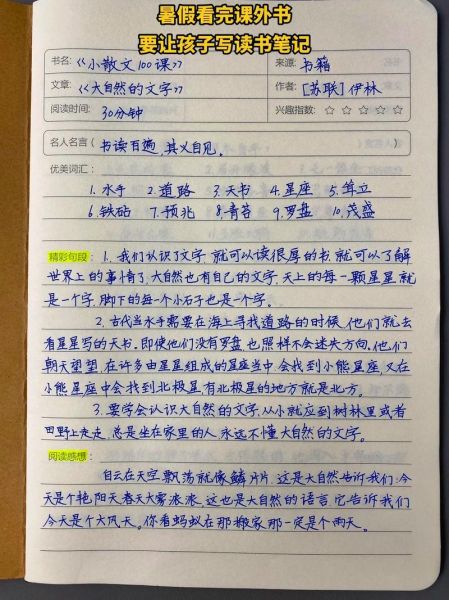 暑假看完课外书
要让孩子写读书笔记
书名:《小散文100课》 来源: 书籍
文章:《大自然的文字》 作者: [苏联]伊林
阅读时间: 30分钟 兴趣指数: ☆ ☆ ☆ ☆ ☆
名人名言( 书读百遍,其义自见。
优美词汇:
1.水手 2.道路 3.天书 4.星座 5.耸立
6.铁砧 7.预兆 8.青苔 9.罗盘 10.茂盛
精彩句段: 1.我们认识了文字,就可以读很厚的书,就可以了解
世界上的事情了,大自然也有自己的文字,天上的每一颗星星就
是一个字,脚下的每一个小石子也是一个字。
2.古代当水手需要在海上寻找道路的时候,他们就去
看星星写的天书。即使他们没有罗盘,也照样不会迷失方向,他们
朝天望望,在许多由星星组成的星座当中,会找到小熊星座,又在
小熊星座中会找到北极星,有北极星的地方就是北方。
3.要学会认识大自然的文字,从小就应到树林里或者
田野上走走,总是坐在家里的人,永远不懂大自然的文字。
阅读感想:
白云在天空飘荡就像鳞片片,这是大自然告诉我们:今
天是个艳阳天,春天大雾浓浓,这也是大自然的语言,它告诉我们
今天是个大风天。你看蚂蚁在那搬家,那一定是个雨天。